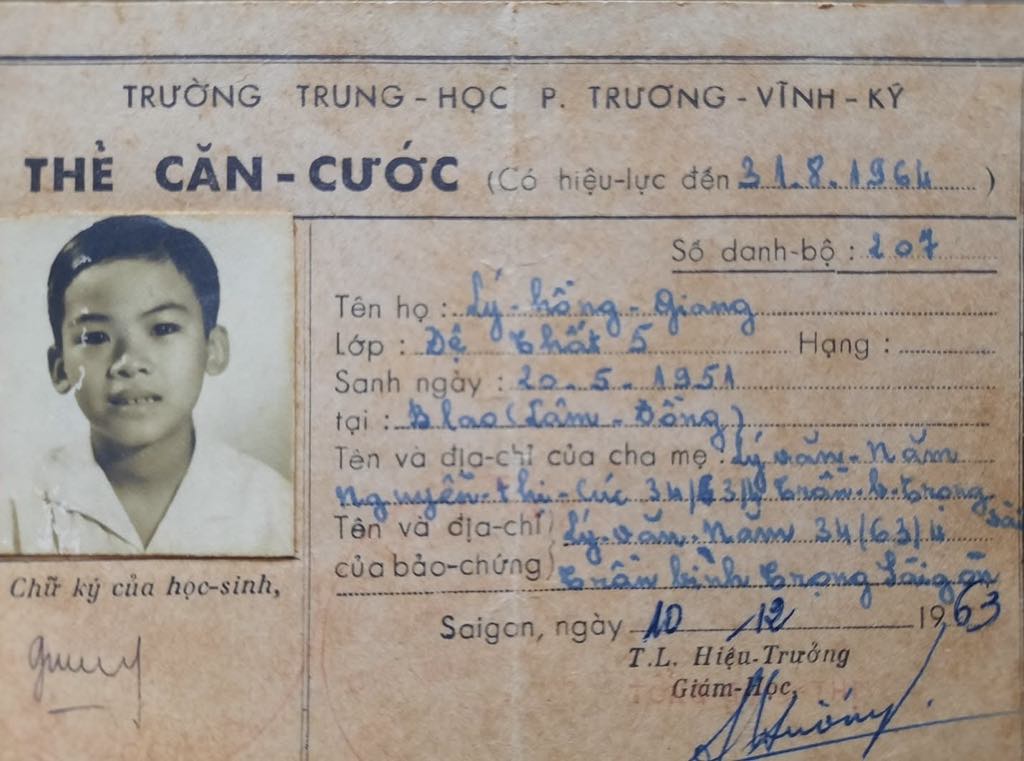 TRƯỜNG TRUNG-HỌC P. TRƯƠNG-VĨNH-KÝ
THẺ CĂN-CƯỚC (Có hiệu-lực đến 31.8.1964)
Số danh-bộ : 207
Tên họ : Lý-hồng-Giang
Lớp : Đệ thất 5 Hạng :
Sanh ngày : 20.5.1951
tại : Blao (Lâm-Đồng)
Tên và địa-chỉ của cha mẹ : Lý văn-Năm
Nguyễn-thi-Cúc 34/63/4 Trần-b-Trọng
Tên và địa-chỉ Lý-văn-Năm 34/63/4
của bảo-chứng Trần bình Trọng Sàigòn
Chữ ký của học-sinh,
Saigon, ngày 10 12 1963
T.L. Hiệu-Trưởng
Giám-Học,